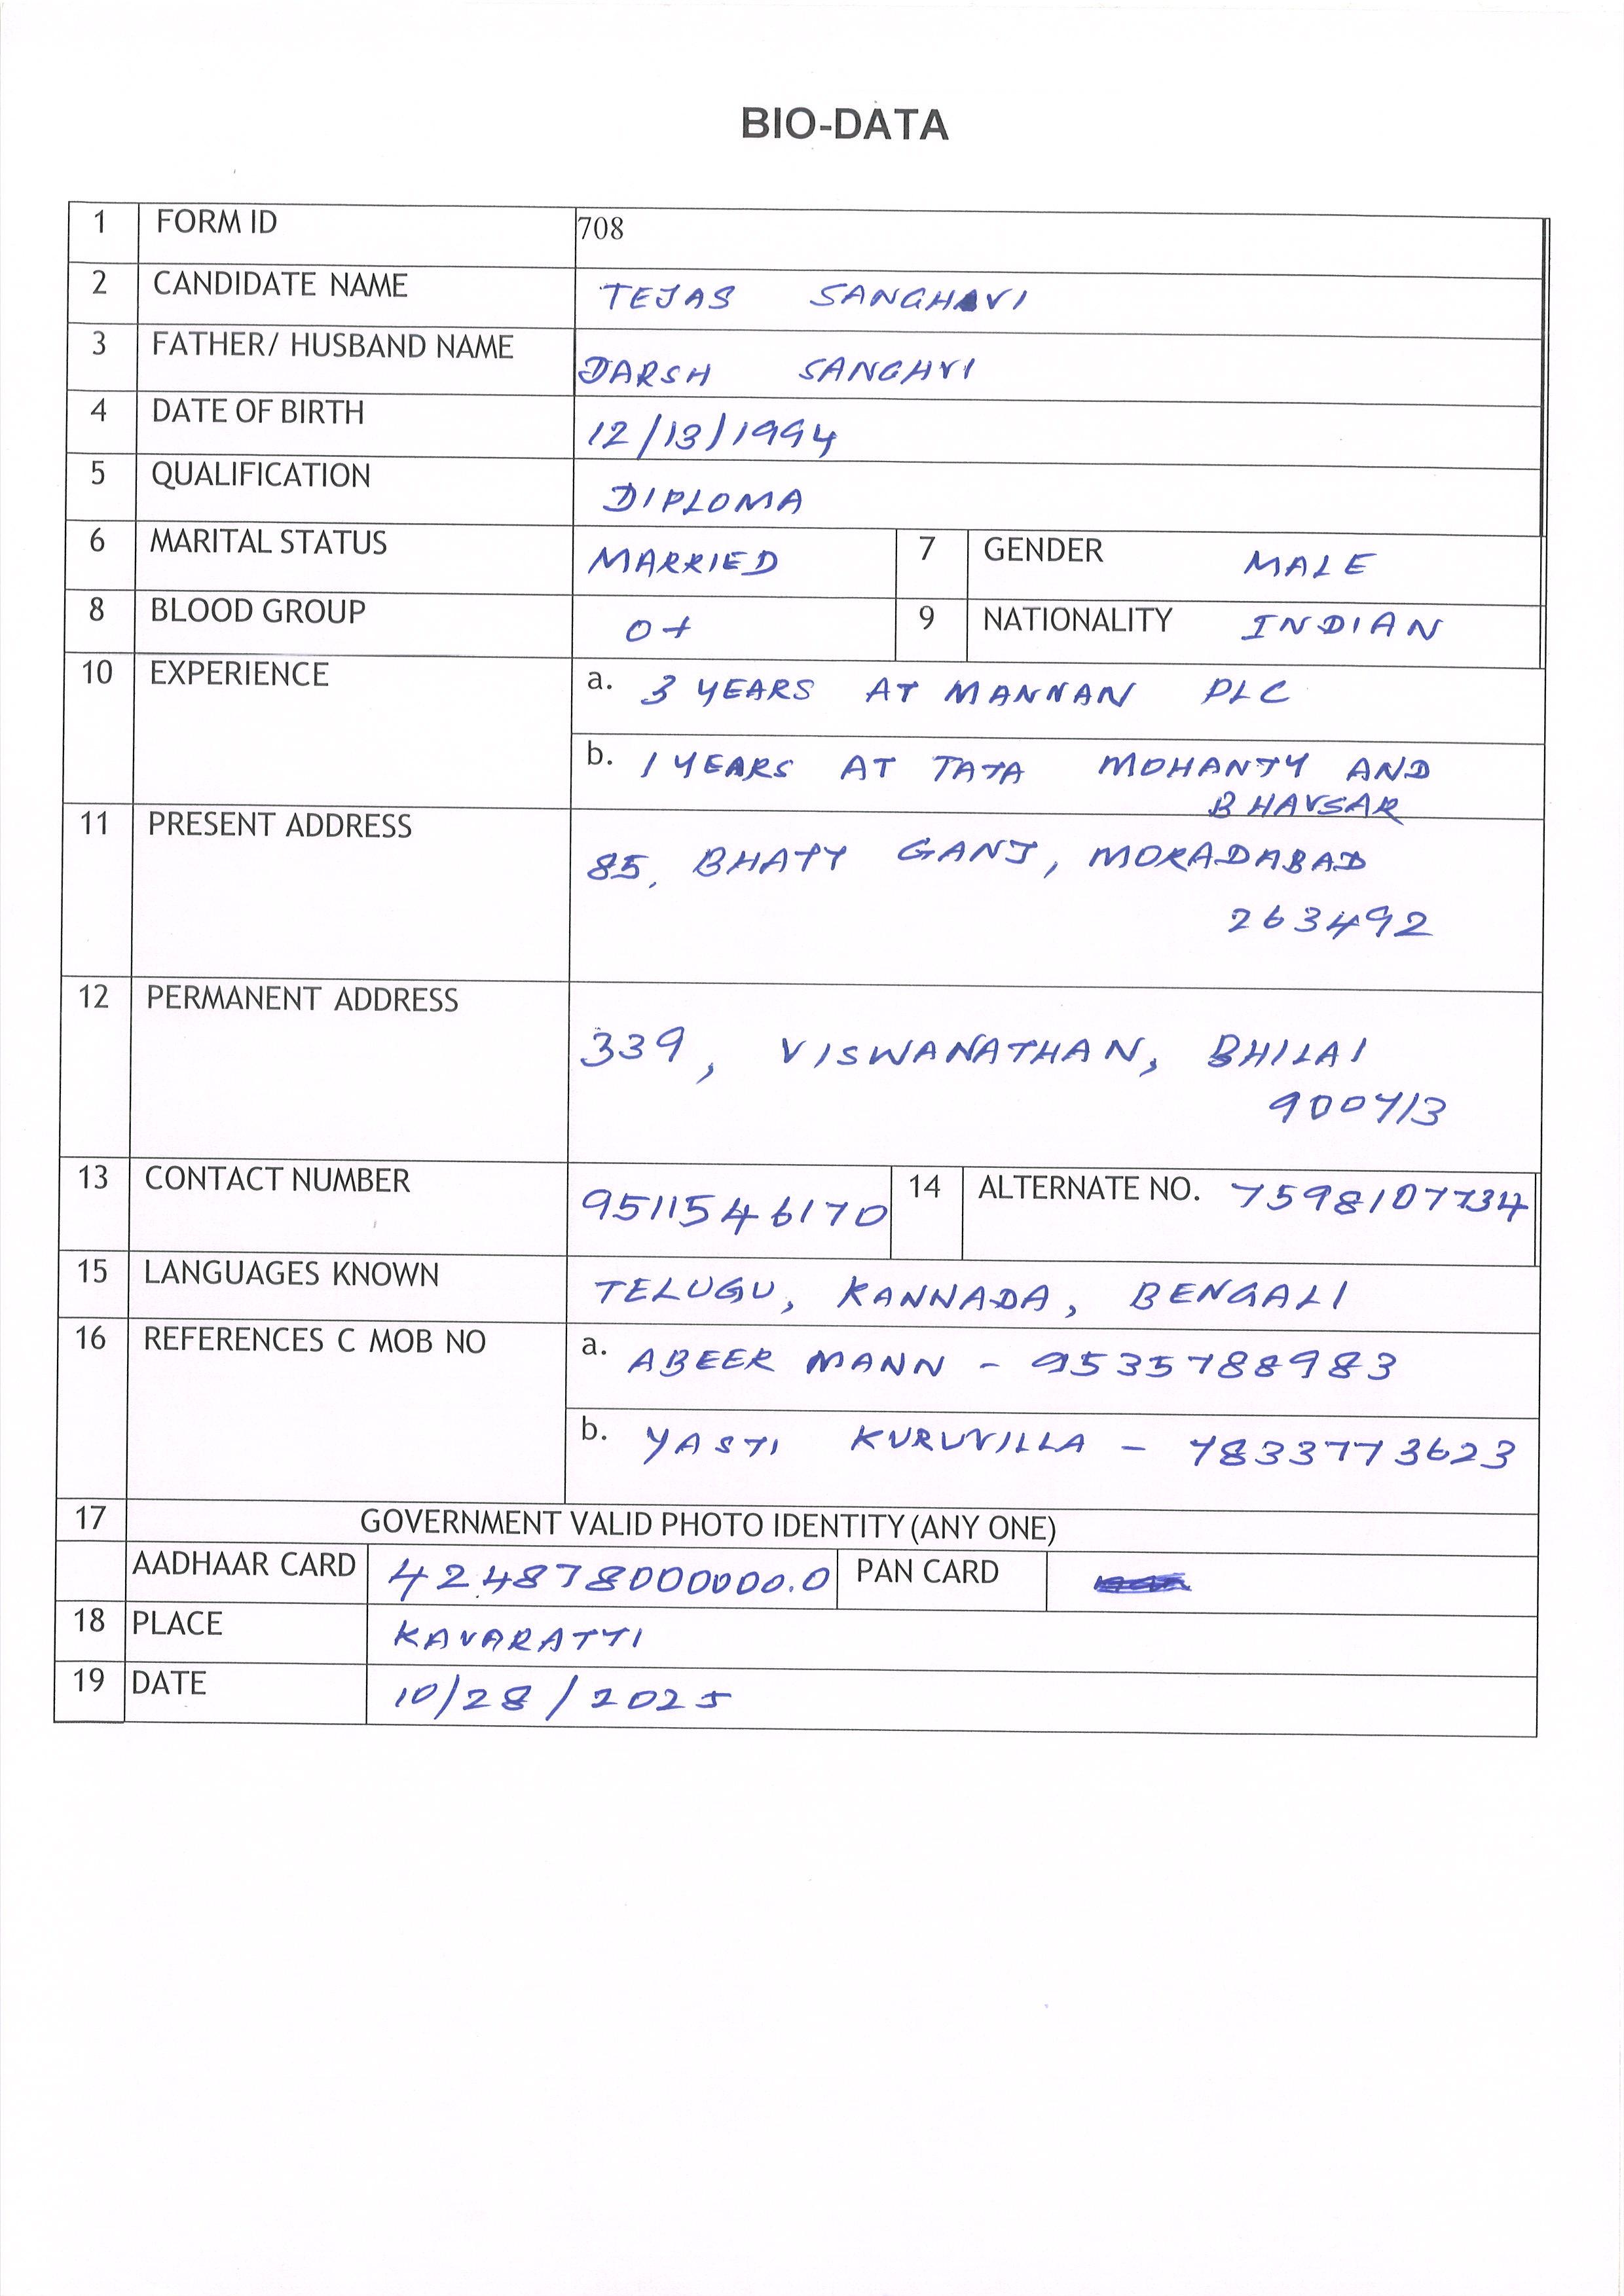 BIO-DATA
1 FORM ID 708
2 CANDIDATE NAME TEJAS SANGHAVI
3 FATHER/ HUSBAND NAME DARSH SANGHVI
4 DATE OF BIRTH 12/13/1994
5 QUALIFICATION DIPLOMA
6 MARITAL STATUS MARRIED 7 GENDER MALE
8 BLOOD GROUP O+ 9 NATIONALITY INDIAN
10 EXPERIENCE a. 3 YEARS AT MANNAN PLC
b. 1 YEARS AT TATA MOHANTY AND
BHAVSAR
11 PRESENT ADDRESS
85, BHATT GANJ, MORADABAD
263492
12 PERMANENT ADDRESS
339, VISWANATHAN, BHILAI
900713
13 CONTACT NUMBER 9511546170 14 ALTERNATE NO. 7598107734
15 LANGUAGES KNOWN TELUGU, KANNADA, BENGALI
16 REFERENCES C MOB NO a. ABEER MANN - 9535788983
b. YASTI KURUVILLA - 7833773623
17 GOVERNMENT VALID PHOTO IDENTITY (ANY ONE)
AADHAAR CARD 424878000000.0 PAN CARD
18 PLACE KAVARATTI
19 DATE 10/28/2025